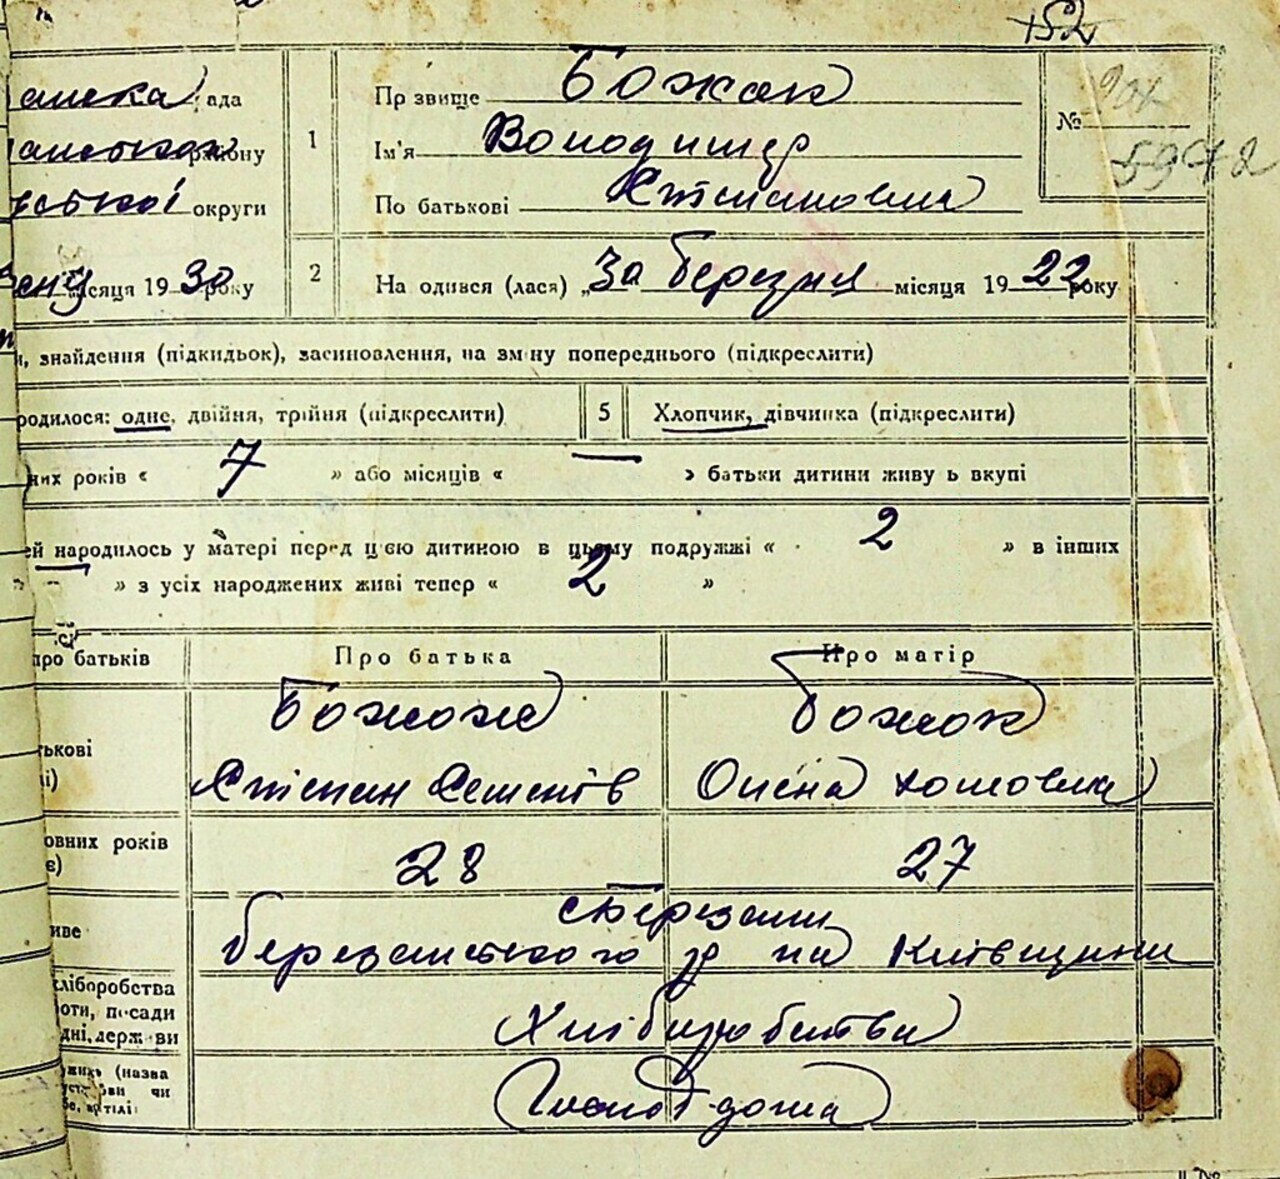 152
Прзвище Божок
рада
№
5978
1
району
Ім'я Володимер
округи
По батькові Степановича
місяця 1930 року
2
На одився (лася) „30 березня місяця 1922 року
знайдення (підкидьок), засиновлення, на зміну попереднього (підкреслити)
родилося: одне, двійня, трійня (підкреслити)
5
Хлопчик, дівчинка (підкреслити)
них років « 7 » або місяців « — » батьки дитини живу ь вкупі
ей народилось у матері перед цією дитиною в цьому подружжі « 2 » в інших
» з усіх народжених живі тепер « 2 »
про батьків
Про батька
Про матір
Божок
Божок
тькові
Степан Семенів
Олена Хомовна
овних років
28
27
с Березани
иве
березанського р на Київщини
хліборобства
оти, посади
Хліборобства
дні, держави
(назва
чи
Глава дома